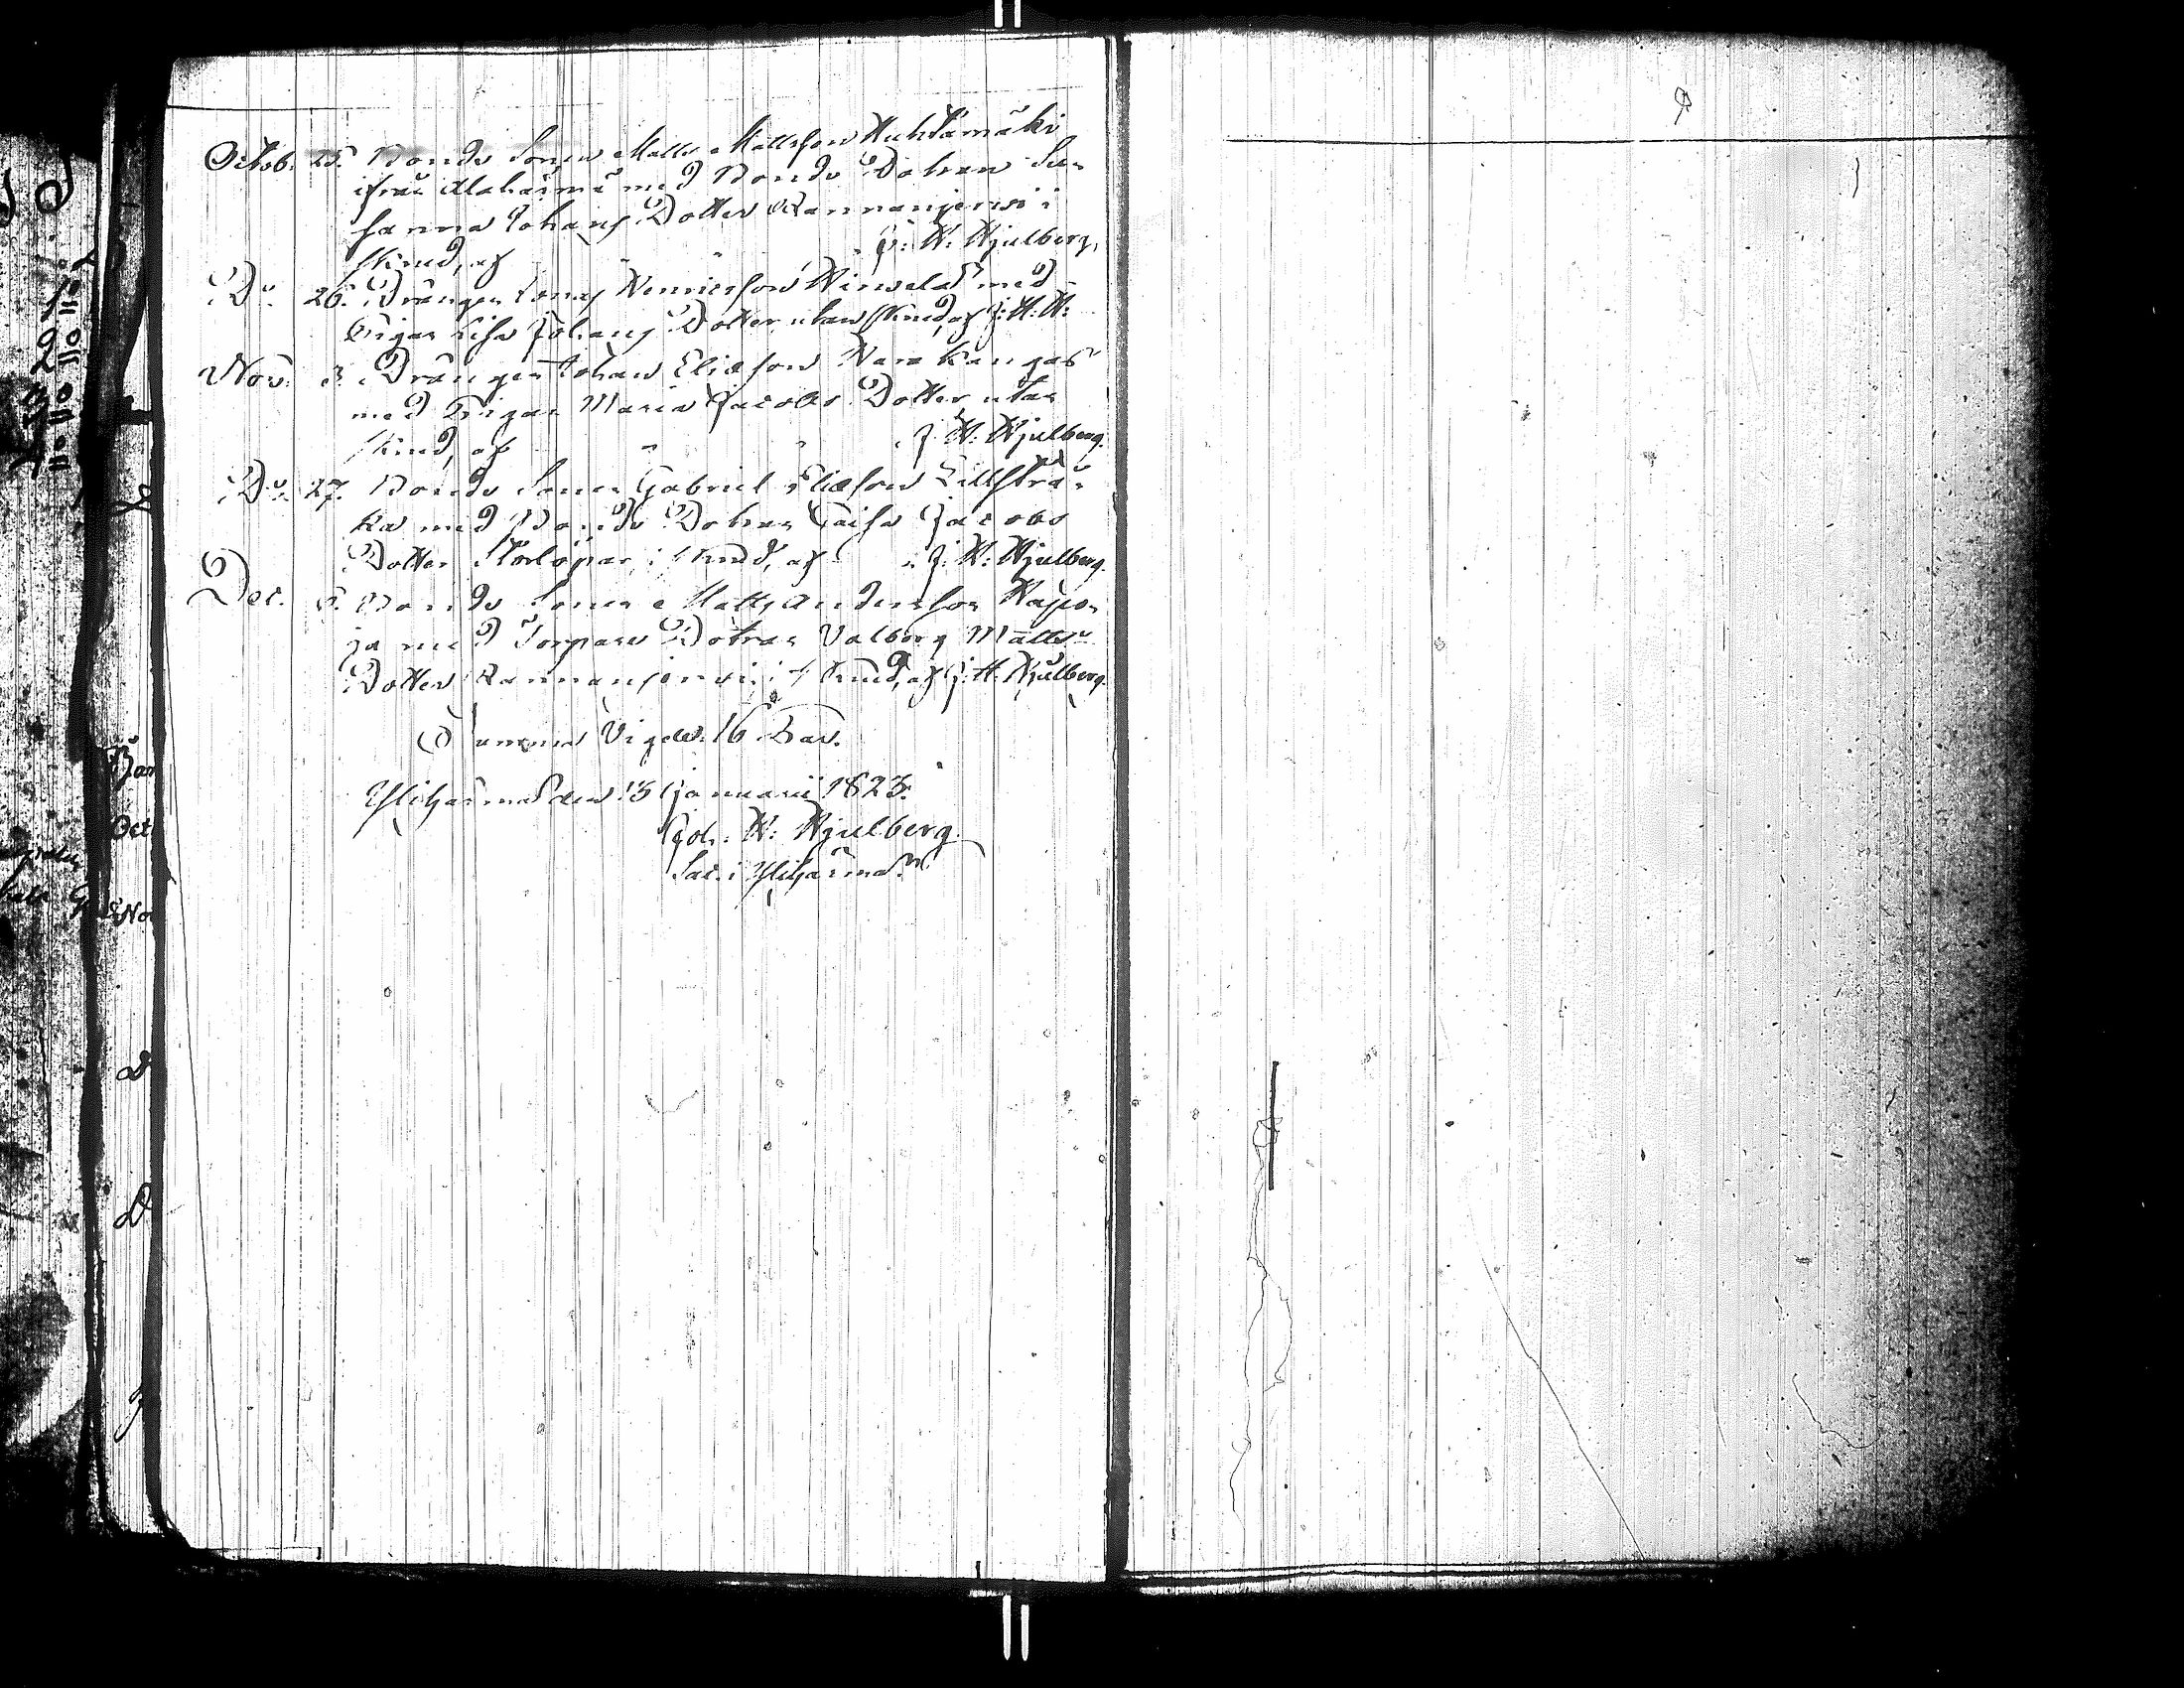 Octob. 25. Bonde Sonen Matts Mattsson Huhtamäki
ifrån Alahärmä med Bonde Dottren Su-
sanna Johans Dotter Rannanjerwi i
skrud, af J: H: Hjulberg.
Do. 26. Drängen Jonas Henricsson Hirwelä med
Pigan Lisa Johans Dotter utan skrud, af J: H: H:
Nov. 3. Drängen Johan Eliasson Kangas
med Pigan Maria Jacobs Dotter utan
skrud, af J: H: Hjulberg.
Do. 27. Bonde Sonen Gabriel Eliasson Lillstrå-
ka med Bonde Dottren Caisa Jacobs
Dotter Storlöpar i skrud, af J: H: Hjulberg.
Dec. Bonde Sonen Matts Andersson
ja med Torpare Dottren Valborg Matts
Dotter Rannanjerwi i skrud, af J: H: Hjulberg.
Summa Vigde 16 Par.
Ylihärmä den 13 Januarii 1823.
Joh: H: Hjulberg
Sac. i Ylihärmä.